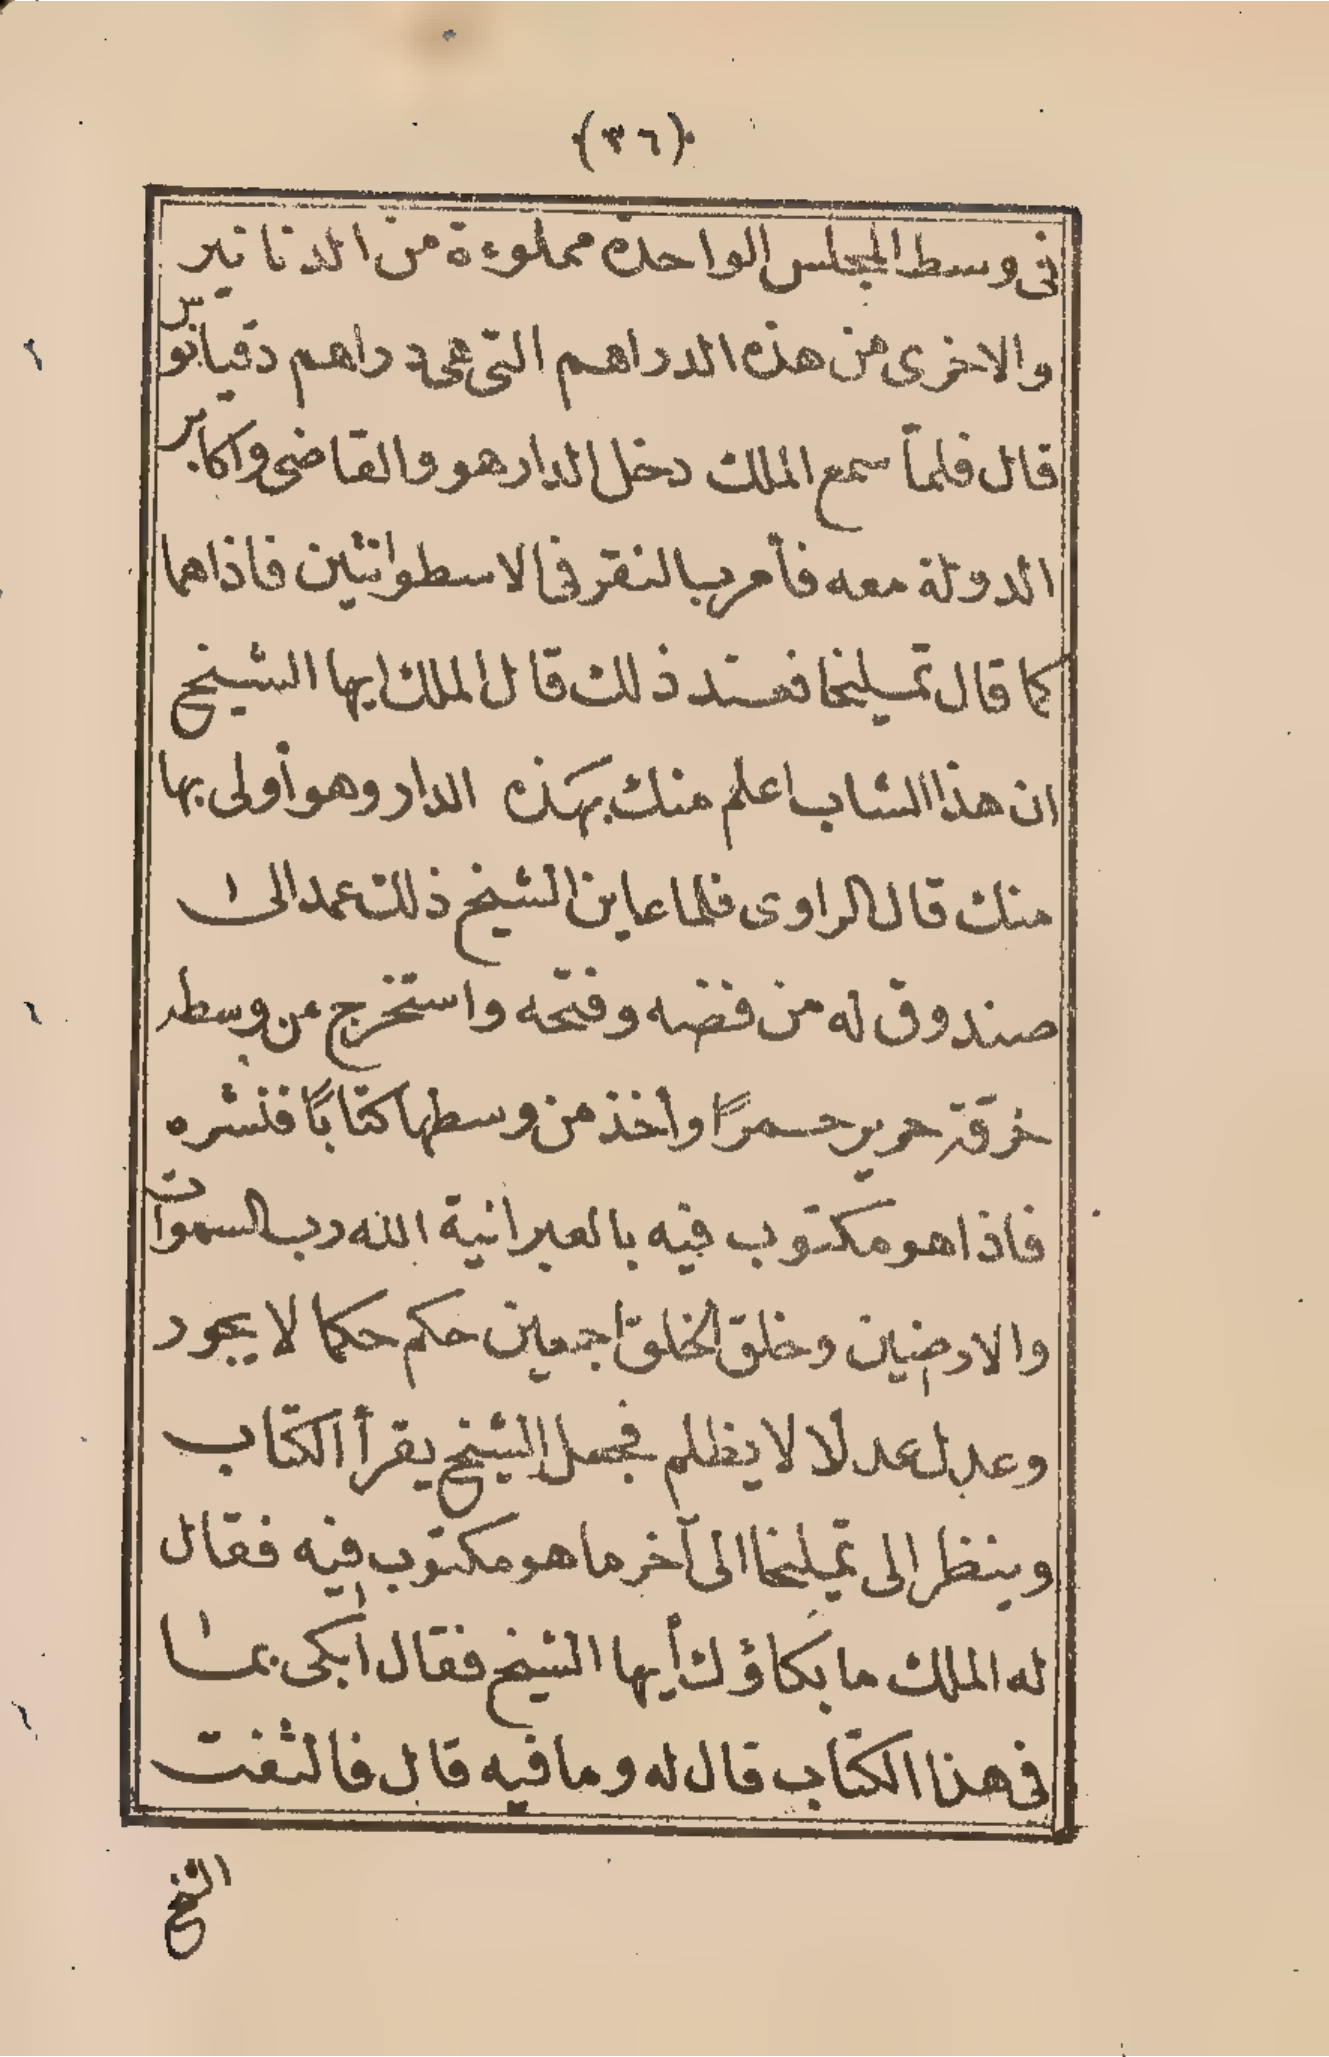 (٣٦)
فى وسط المجلس الواحدة مملوءة من الدنانير
والاخرى من هذه الدراهم التى هى دراهم دقيانوس
قال فلمّا سمع الملك دخل الدار هو والقاضى واكابر
الدولة معه فأمر بالنقر فى الاسطوانتين فاذاهما
كما قال تمليخا فعند ذلك قال الملك ايها الشيخ
ان هذا الشاب اعلم منك بهذه الدار وهو أولى بها
منك قال الراوى فلما عاين الشيخ ذلك عمد الى
صندوق له من فضه وفتحه واستخرج من وسطه
خرقة حرير حمرًا وأخذ من وسطها كتابًا فنشره
فاذا هو مكتوب فيه بالعبرانية الله رب السموات
والارضين وخلق الخلق اجمعين حكم حكما لا يجور
وعدل عدلًا لا يظلم فجعل الشيخ يقرأ الكتاب
وينظر الى تمليخا الى آخر ما هو مكتوب فيه فقال
له الملك ما بكاؤك أيها الشيخ فقال أبكى بما
فى هذا الكتاب قال له وما فيه قال فالتفت
الشيخ